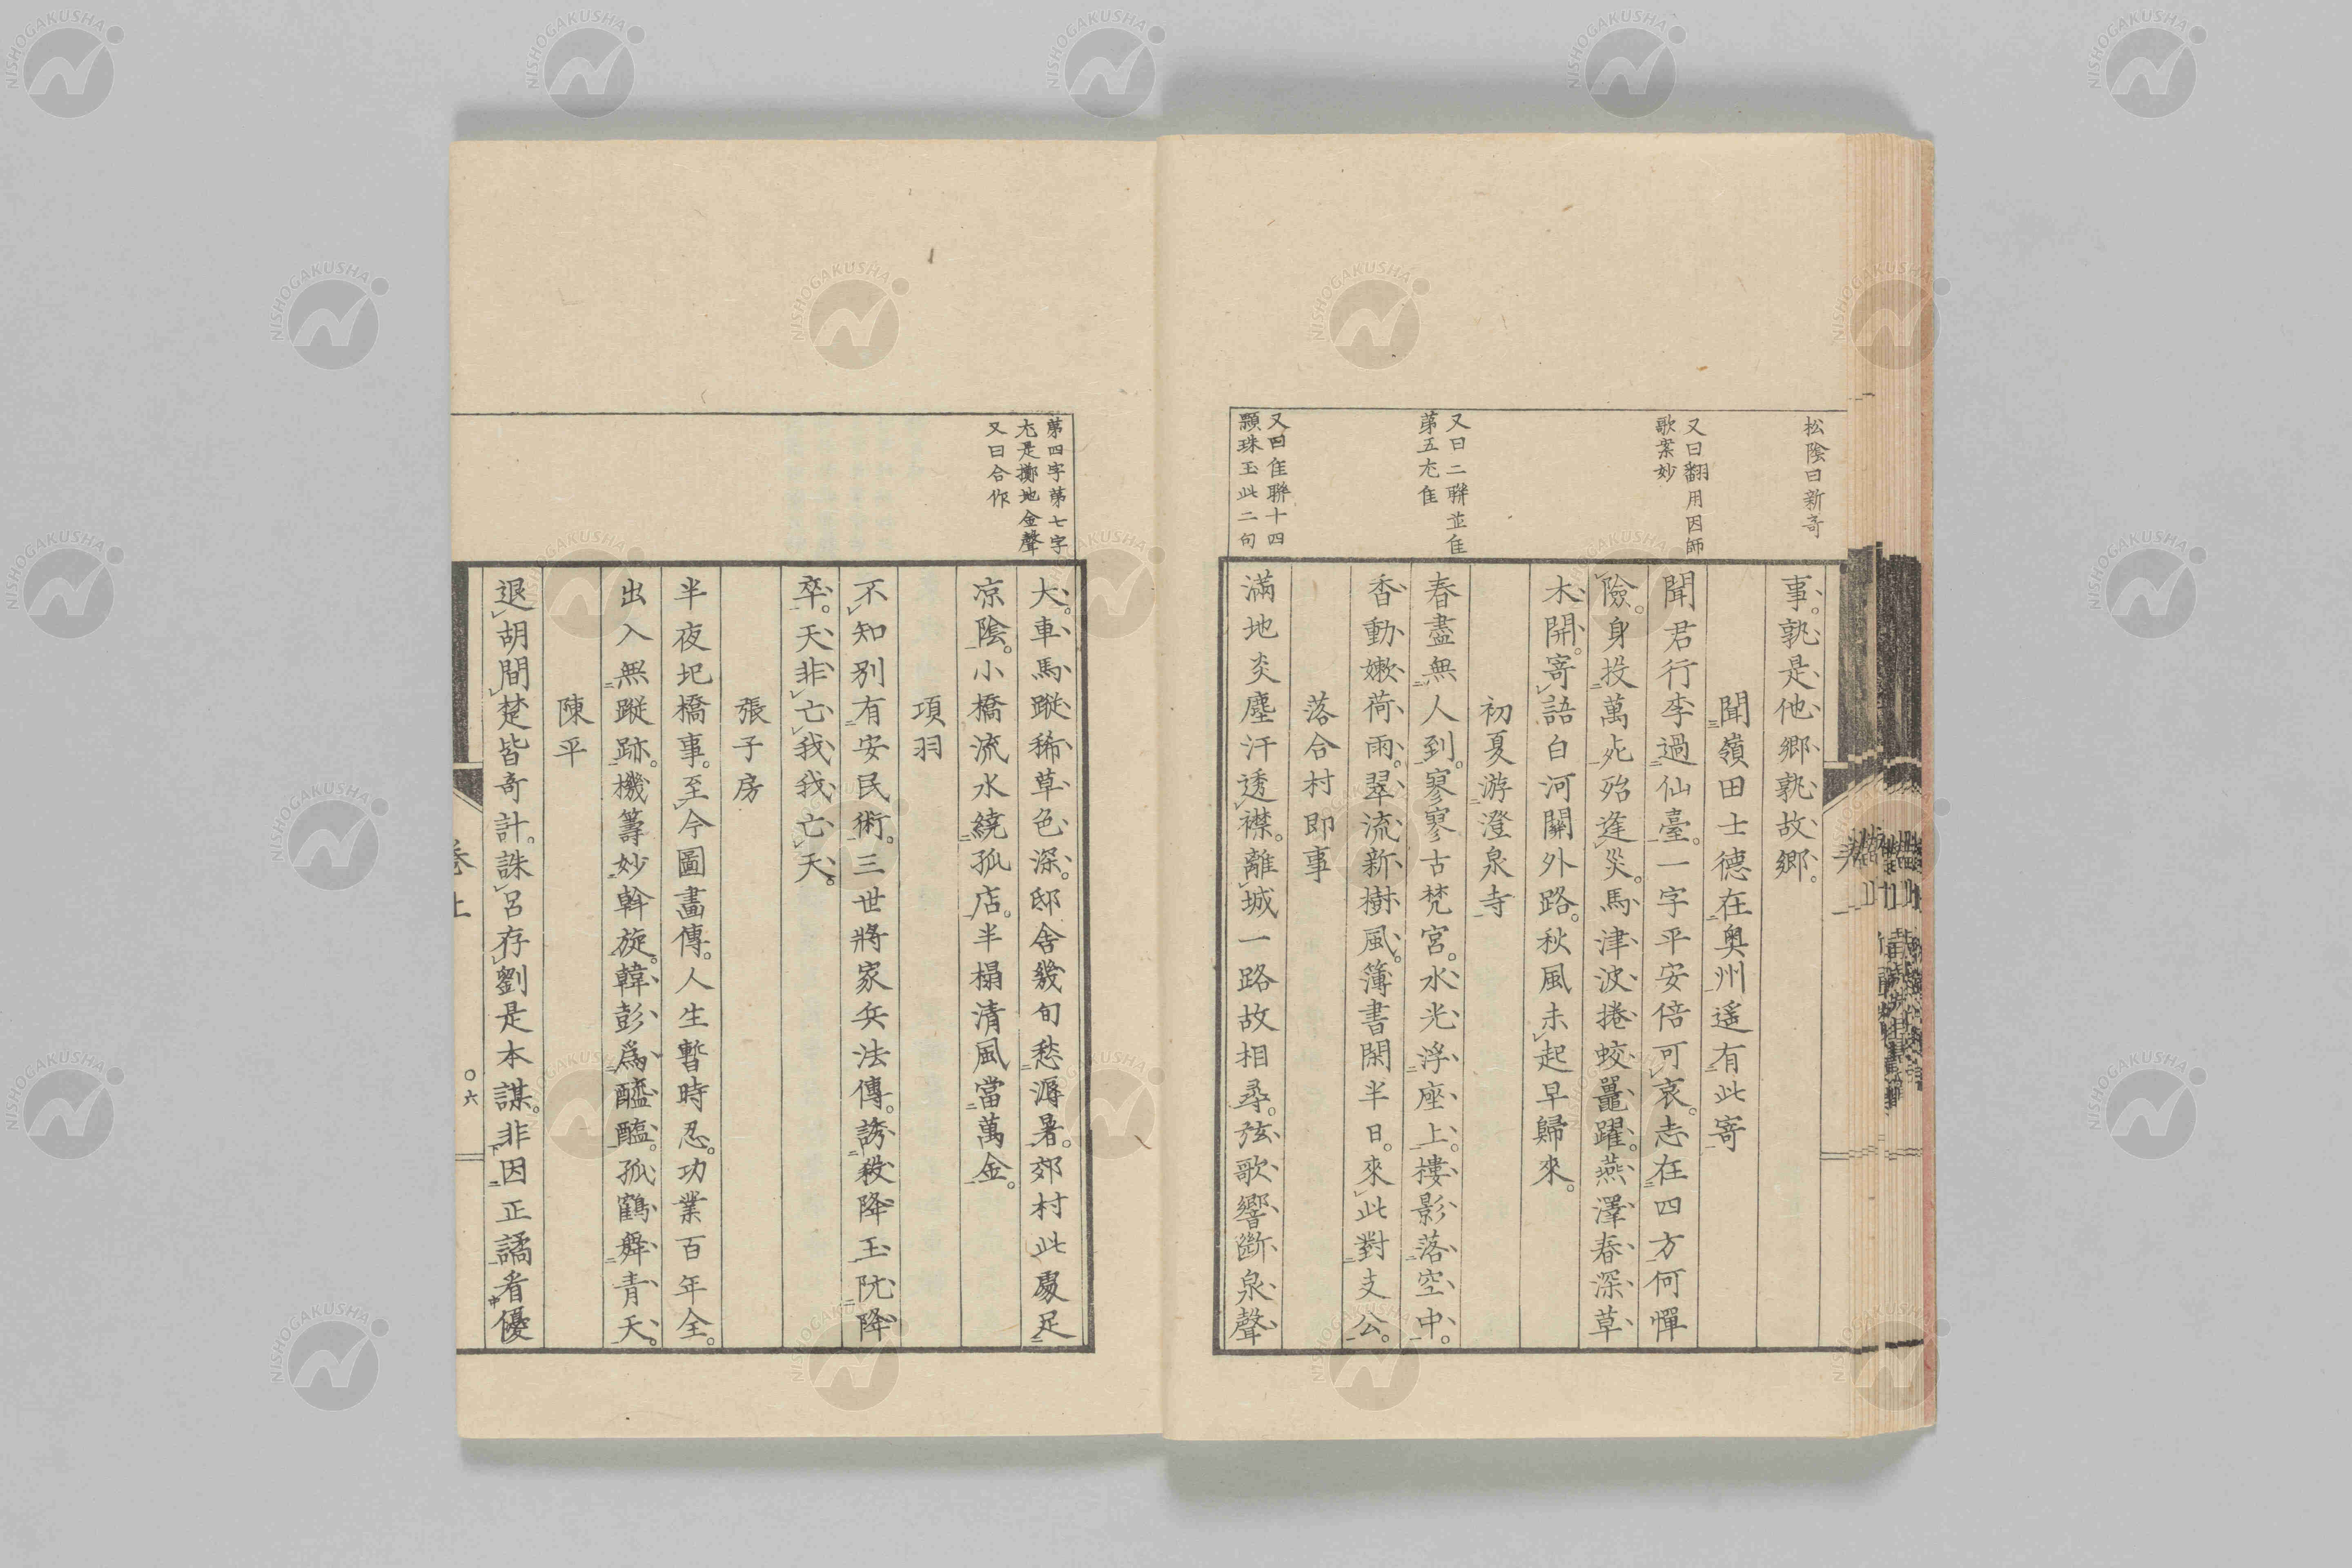 松陰曰新奇
又曰翻用因師
歌案妙
又曰二聯並佳
第五尤佳
又曰佳聯十四
顆珠玉此二句
事。孰是他鄉孰故鄉。
聞嶺田士德在奥州遥有此寄
聞君行李過仙臺。一字平安倍可哀。志在四方何憚
險。身投萬死殆逢災。馬津波捲蛟鼉躍。燕澤春深草
木開。寄語白河關外路。秋風未起早歸來。
初夏游澄泉寺
春盡無人到。寥寥古梵宮。水光浮座上。樓影落空中。
香動嫩荷雨。翠流新樹風。簿書閑半日。來此對支公。
落合村即事
滿地炎塵汗透襟。離城一路故相尋。弦歌響斷泉聲
第四字第七字
尤是擲地金聲
又曰合作
大。車馬蹤稀草色深。邸舍幾旬愁溽暑。郊村此處足
凉陰。小橋流水繞孤店。半榻清風當萬金。
項羽
不知別有安民術。三世將家兵法傳。誘殺降王阬降
卒。天非亡我我亡天。
張子房
半夜圯橋事。至今圖畫傳。人生暫時忍。功業百年全。
出入無蹤跡。機籌妙斡旋。韓彭爲醢醢。孤鶴舞青天。
陳平
退胡間楚皆奇計。誅呂存劉是本謀。非因正譎看優
卷上
〇六
NISHOGAKUSHA